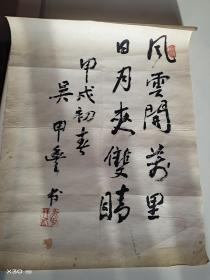 風雲開萬里
日月爽雙晴
甲戌初春
吴甲豐书
X30